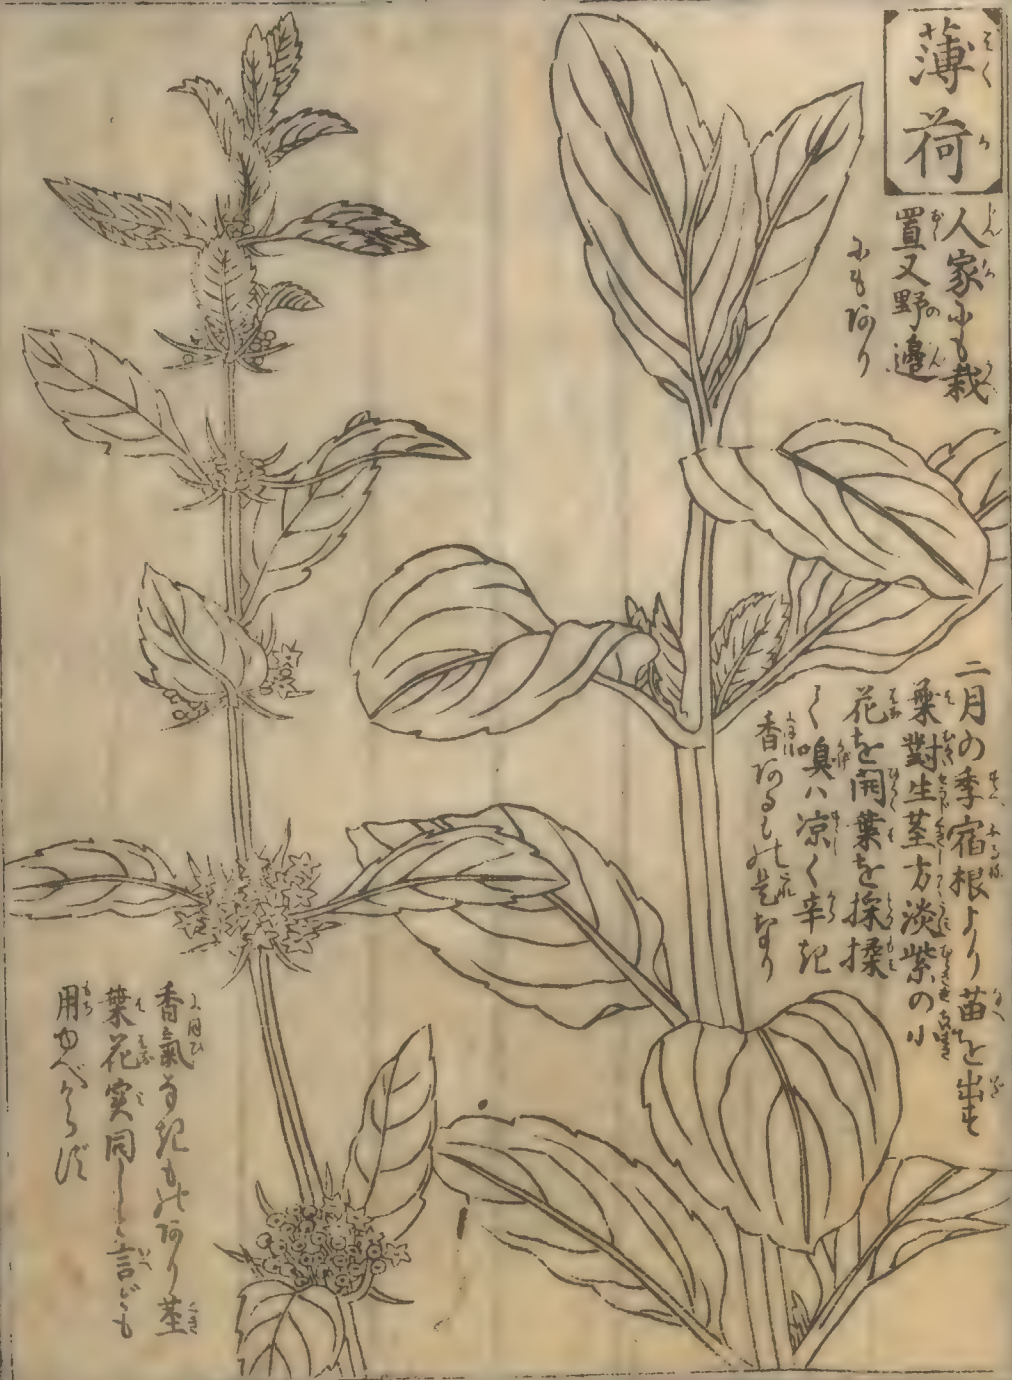 薄荷
人家にも栽
置又野邊
にもあり
二月の季宿根より苗を出す
葉對生茎方淡紫の小
花を開葉を採揉
て嗅バ凉く辛き
香あるもの是なり
香氣なきものあり茎
葉花実同しと言ども
用ゆべからず